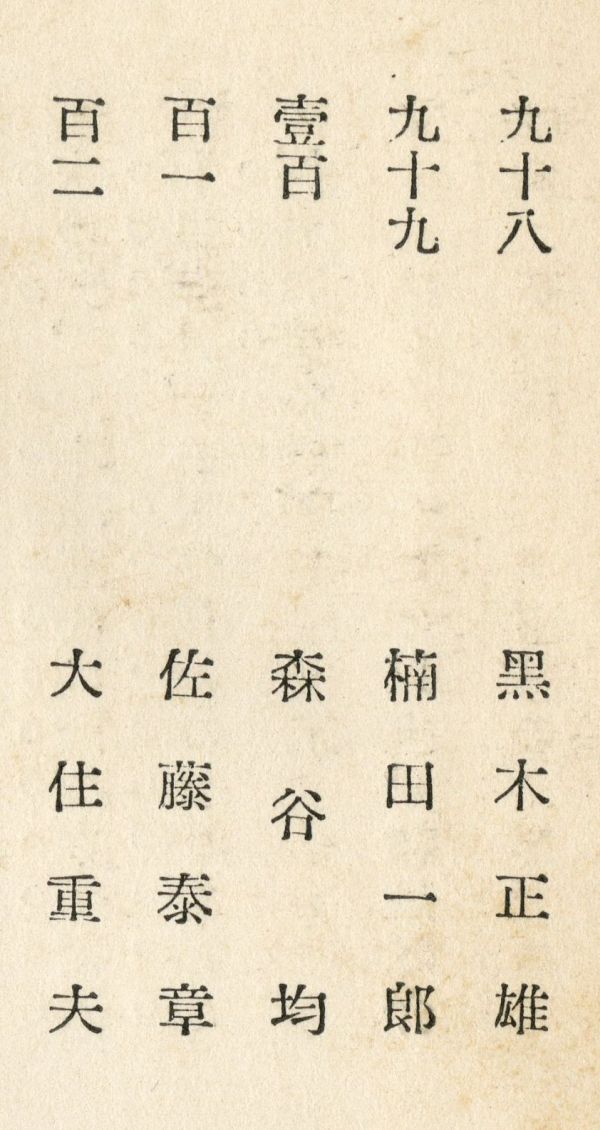 九十八 黑木正雄
九十九 楠田一郎
壹百 森谷均
百一 佐藤泰章
百二 大住重夫